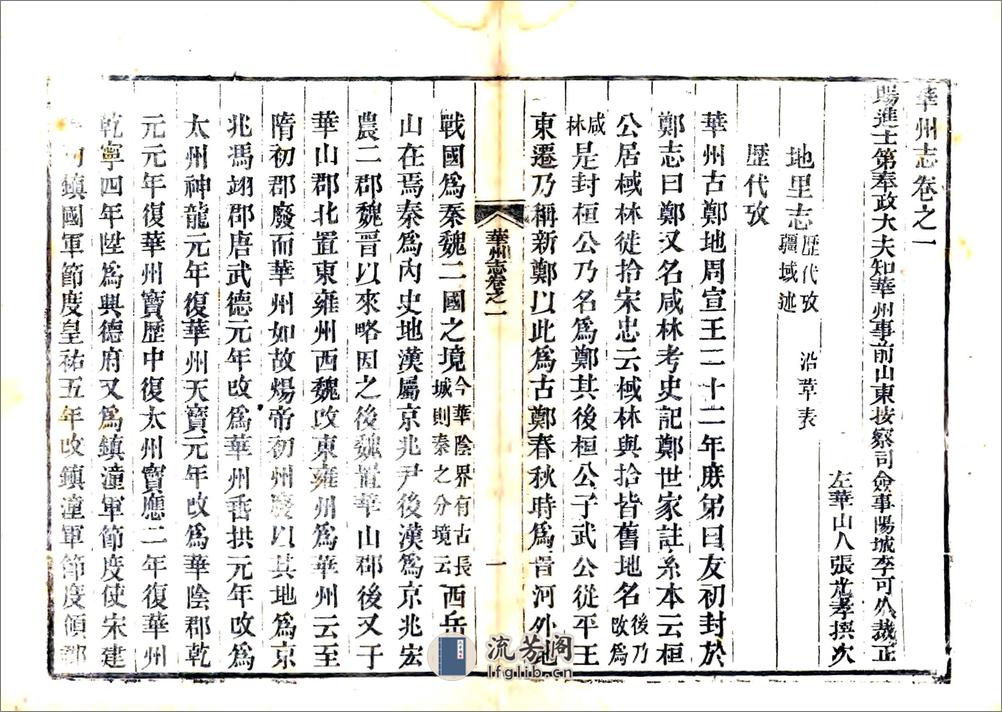 華州志卷之一
賜進士第奉政大夫知華州事前山東按察司僉事陽城李可久裁正
左華山人張光孝撰次
地里志 歷代攷 沿革表 疆域述
歷代攷
華州古鄭地周宣王二十二年庶弟曰友初封於
鄭志曰鄭又名咸林考史記鄭世家註糸本云桓
公居棫林徙拾宋忠云棫林與拾皆舊地名後乃改爲
咸林是封桓公乃名爲鄭其後桓公子武公從平王
東遷乃稱新鄭以此爲古鄭春秋時爲晉河外地
華州志卷之一
一
戰國爲秦魏二國之境今華陰界有古長城則秦之分境云西岳
山在焉秦爲內史地漢屬京兆尹後漢爲京兆宏
農二郡魏晉以來略因之後魏置華山郡後又于
華山郡北置東雍州西魏改東雍州爲華州云至
隋初郡廢而華州如故煬帝初州廢以其地爲京
兆馮翊郡唐武德元年改爲華州垂拱元年改爲
太州神龍元年復華州天寶元年改爲華陰郡乾
元元年復華州寶歷中復太州寶應二年復華州
乾寧四年陞爲興德府又爲鎮潼軍節度使宋建
鎮國軍節度皇祐五年改鎮潼軍節度領郡
流芳阁
lfglib.cn